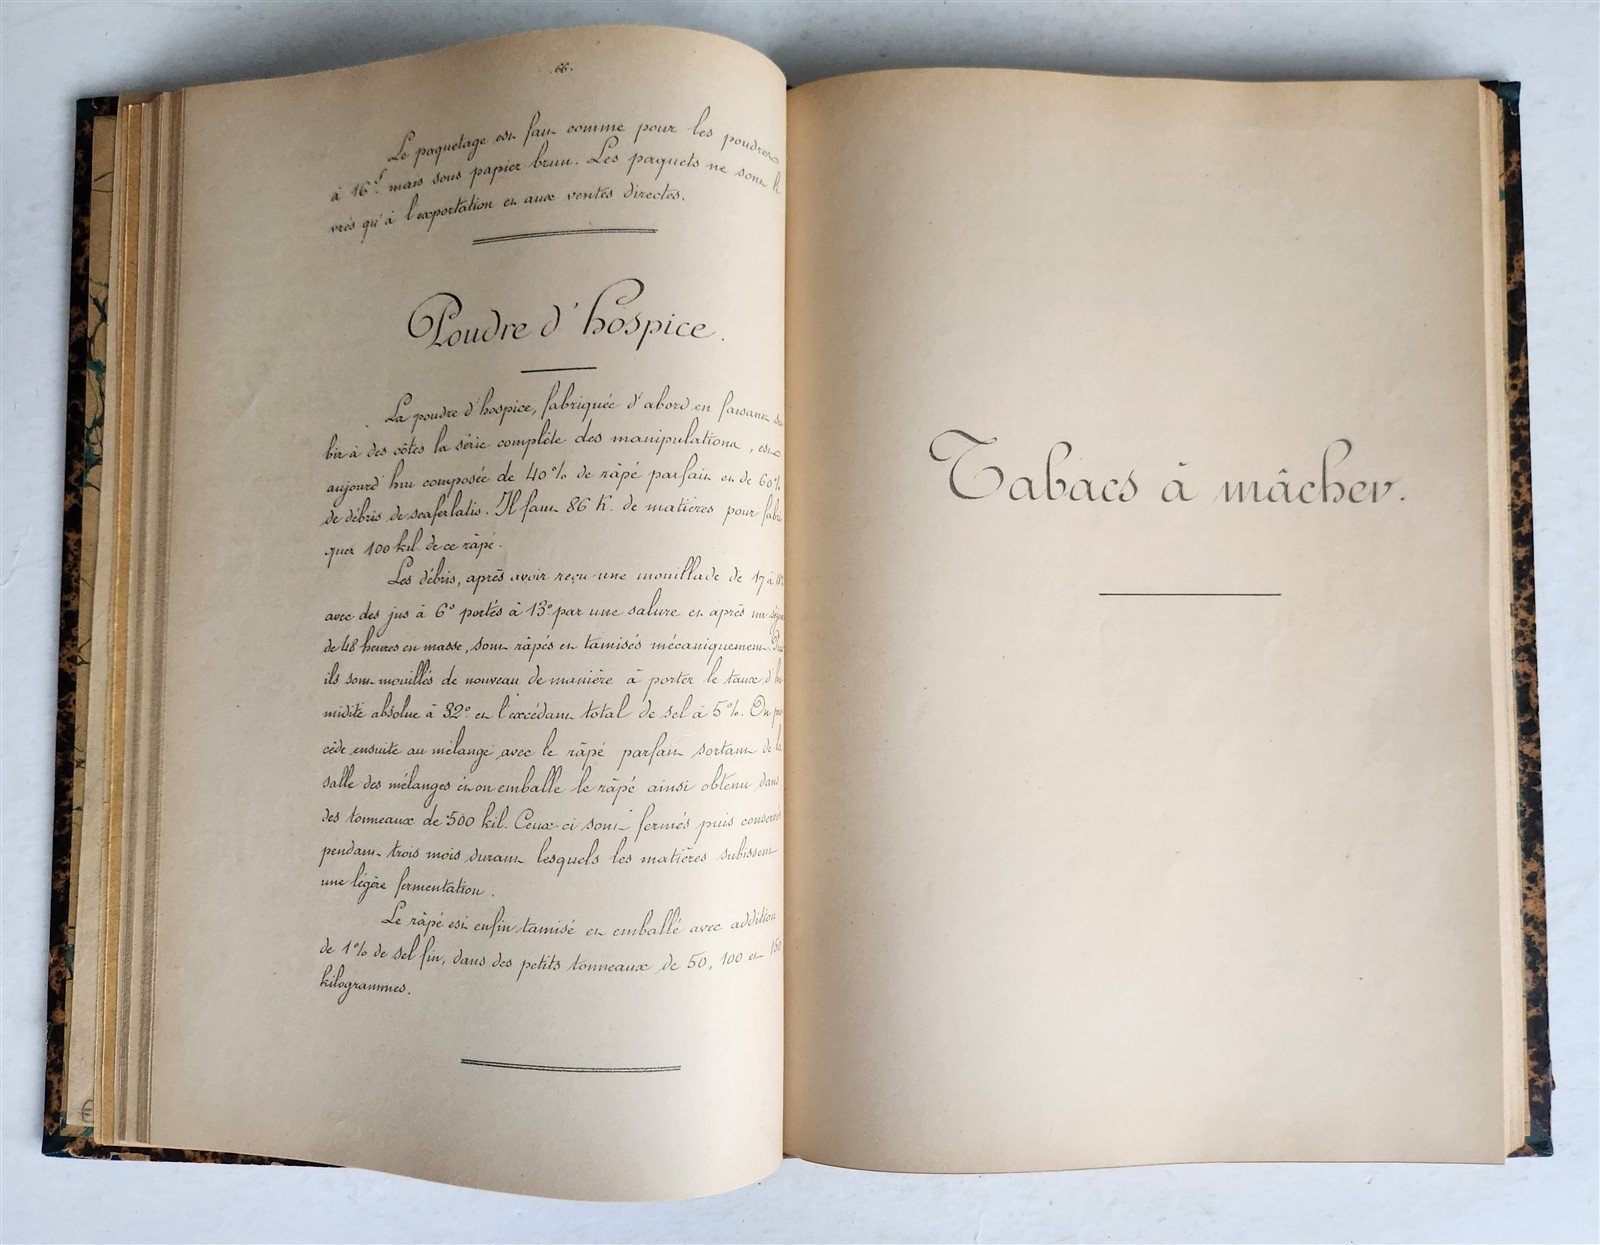 .66.
Le paquetage est fait comme pour les poudres
à 16f. mais sous papier brun. Les paquets ne sont li
vrés qu'à l'exportation et aux ventes directes.
Poudre d'hospice.
La poudre d'hospice, fabriquée d'abord en faisant su
bir à des côtes la série complète des manipulations, est
aujourd'hui composée de 40% de râpé parfait et de 60%
de débris de scaferlatis. Il faut 86 K. de matières pour fabri
quer 100 kil. de ce râpé.
Les débris, après avoir reçu une mouillade de 17 à
avec des jus à 6° portés à 13° par une salure et après un séjour
de 48 heures en masse, sont râpés et tamisés mécaniquement. Puis
ils sont mouillés de nouveau de manière à porter le taux d'hu
midité absolue à 32° et l'excédant total de sel à 5%. On pro
cède ensuite au mélange avec le râpé parfait sortant de la
salle des mélanges et on emballe le râpé ainsi obtenu dans
des tonneaux de 500 kil. Ceux-ci sont fermés puis conservés
pendant trois mois durant lesquels les matières subissent
une légère fermentation.
Le râpé est enfin tamisé et emballé avec addition
de 1% de sel fin, dans des petits tonneaux de 50, 100 et 150
kilogrammes.
Tabacs à mâcher.